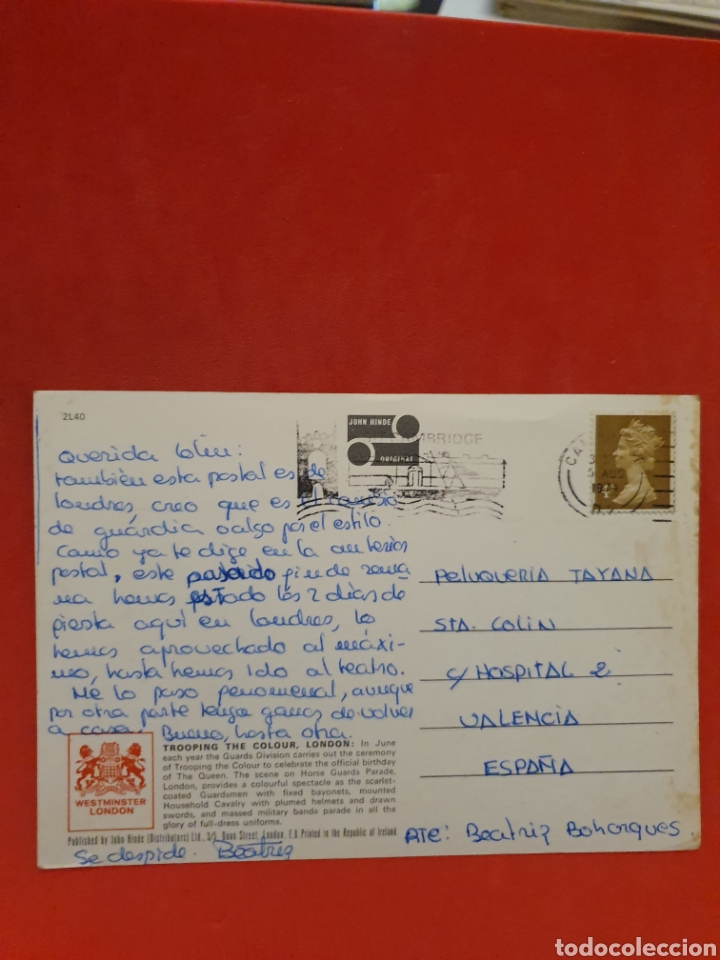 2L40
JOHN HINDE
ORIGINAL
CAMBRIDGE
Querida Colin:
también esta postal es de
londres, creo que es el cambio
de guárdia o algo por el estilo
Como ya te dige en la anterior
postal, este pasado fin de sema
na hemos estado los 2 dias de
fiesta aquí en londres, lo
hemos aprovechado al máxi-
mo, hasta hemos ido al teatro.
Me lo paso fenomenal, aunque
por otra parte tengo ganas de volver
a casa. Bueno, hasta otra.
Se despide. Beatriz
PELUQUERIA TAYANA
STA. COLIN
C/ HOSPITAL 2
VALENCIA
ESPAÑA
ATE: Beatriz Bohorques
WESTMINSTER
LONDON
TROOPING THE COLOUR, LONDON: In June
each year the Guards Division carries out the ceremony
of Trooping the Colour to celebrate the official birthday
of The Queen. The scene on Horse Guards Parade,
London, provides a colourful spectacle as the scarlet-
coated Guardsmen with fixed bayonets, mounted
Household Cavalry with plumed helmets and drawn
swords, and massed military bands parade in all the
glory of full-dress uniforms.
Published by John Hinde (Distributors) Ltd., Dunn Street, London, E.8 Printed in the Republic of Ireland
todocoleccion